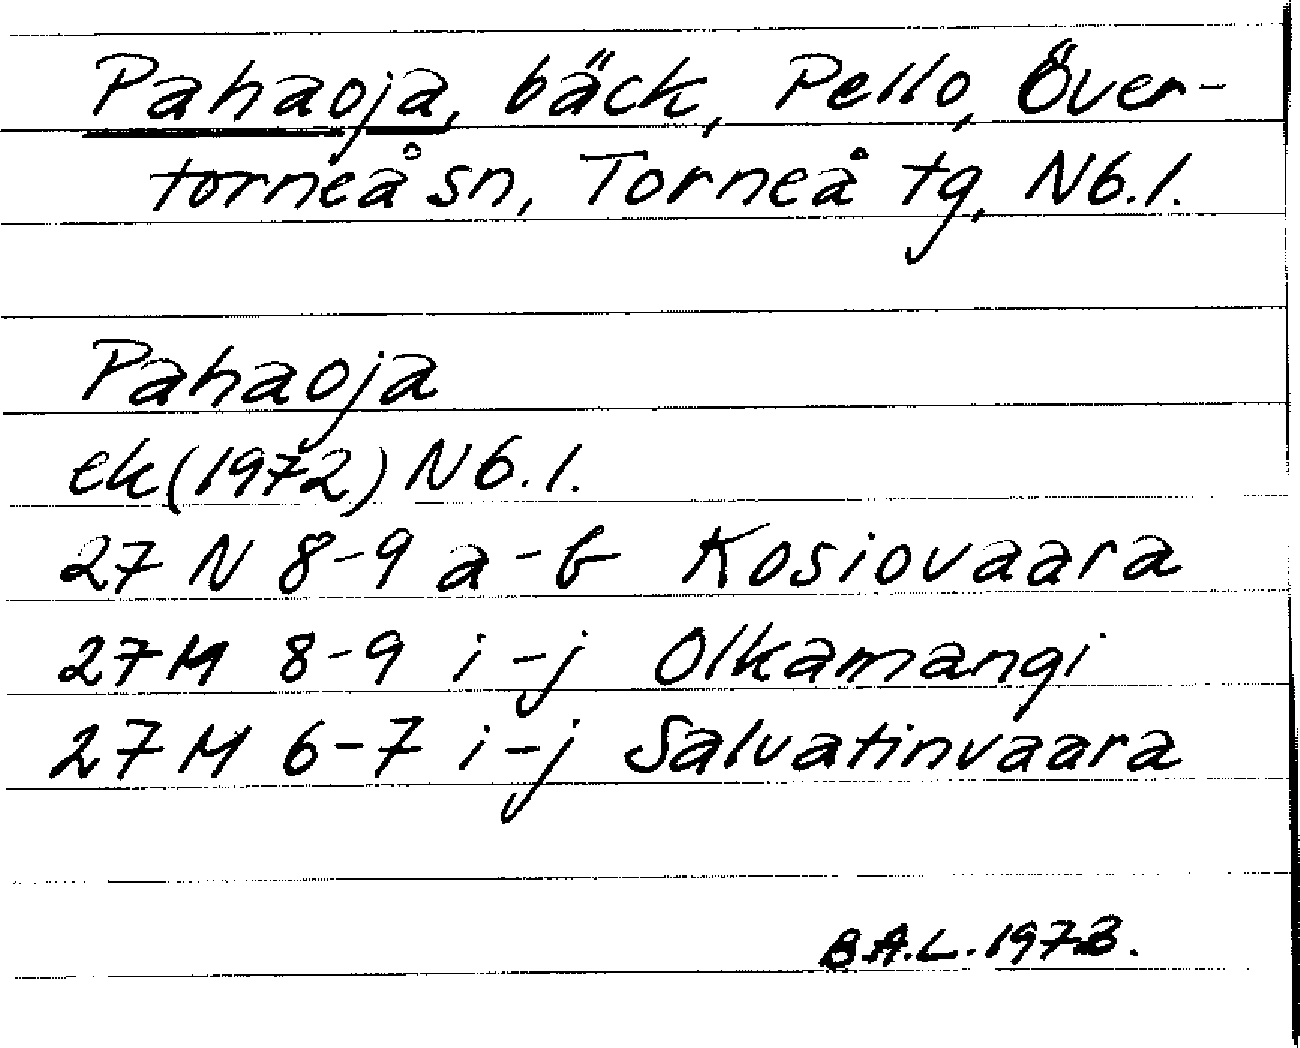 Pahaoja, bäck, Pello, Över-
torneå sn, Torneå tg, Nb.l.
Pahaoja
ek (1972) Nb.l.
27 N 8-9 a-b Kosiovaara
27 M 8-9 i-j Olkamangi
27 M 6-7 i-j Salvatinvaara
B.A.L. 1973.